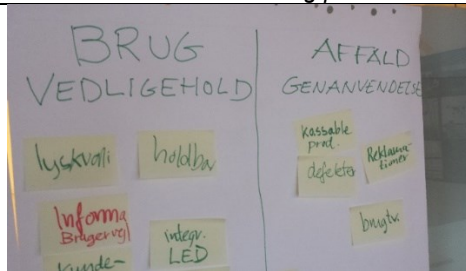 BRUG
VEDLIGEHOLD
lyskvali
holdbar
Informa
integr.
LED
Kunde-
AFFALD
GENANVENDELSE
kassable
prod.
defekter
Reklama-
tioner
brugtv.